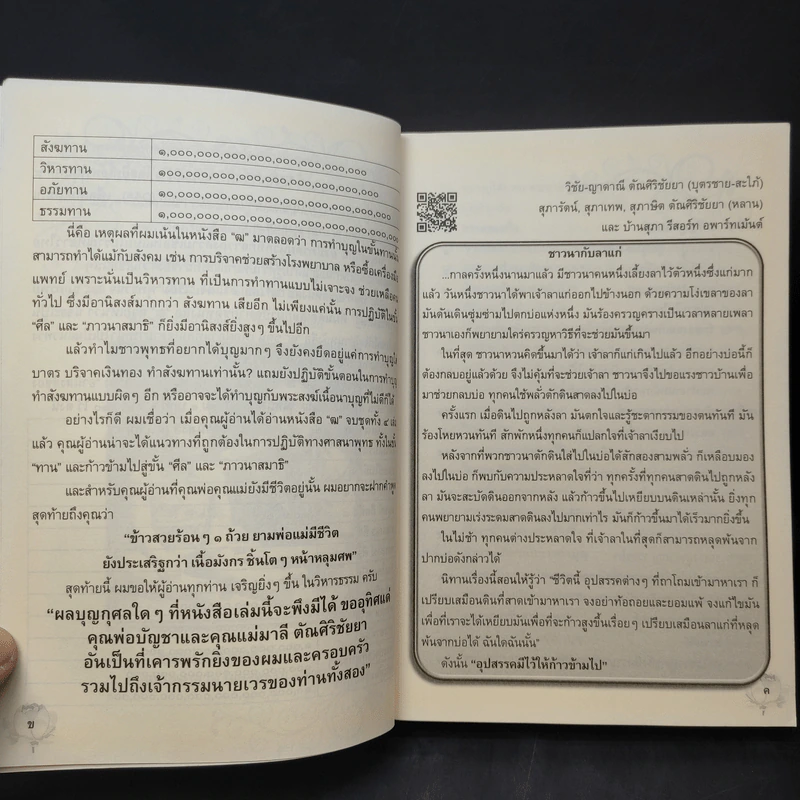 สังฆทาน ๑,๐๐๐,๐๐๐,๐๐๐,๐๐๐,๐๐๐,๐๐๐,๐๐๐
วิหารทาน
อภัยทาน
ธรรมทาน
นี่คือ เหตุผลที่ผมเน้นในหนังสือ “ฒ” มาตลอดว่า การทำบุญในขั้นทานนั้น
สามารถทำได้แม้กับสังคม เช่น การบริจาคช่วยสร้างโรงพยาบาล หรือซื้อเครื่องมือ
แพทย์ เพราะนั่นเป็นวิหารทาน ที่เป็นการทำทานแบบไม่เจาะจง ช่วยเหลือคน
ทั่วไป ซึ่งมีอานิสงส์มากกว่า สังฆทาน เสียอีก ไม่เพียงแค่นั้น การปฏิบัติในขั้น
“ศีล” และ “ภาวนาสมาธิ” ก็ยิ่งมีอานิสงส์ยิ่งสูงๆ ขึ้นไปอีก
แล้วทำไมชาวพุทธที่อยากได้บุญมากๆ จึงยังคงยึดอยู่แค่การทำบุญ
บาตร บริจาคเงินทอง ทำสังฆทานเท่านั้น? แถมยังปฏิบัติขั้นตอนในการ
ทำสังฆทานแบบผิดๆ อีก หรืออาจจะได้ทำบุญกับพระสงฆ์เนื้อนาบุญที่ไม่ดีก็ได้
อย่างไรก็ดี ผมเชื่อว่า เมื่อคุณผู้อ่านได้อ่านหนังสือ “ฒ” จบชุดทั้ง ๔ เล่ม
แล้ว คุณผู้อ่านน่าจะได้แนวทางที่ถูกต้องในการปฏิบัติทางศาสนาพุทธ ทั้งในขั้น
“ทาน” และก้าวข้ามไปสู่ขั้น “ศีล” และ “ภาวนาสมาธิ”
และสำหรับคุณผู้อ่านที่คุณพ่อคุณแม่ยังมีชีวิตอยู่นั้น ผมอยากจะฝากคำพูด
สุดท้ายถึงคุณว่า
“ข้าวสวยร้อนๆ ๑ ถ้วย ยามพ่อแม่มีชีวิต
ยังประเสริฐกว่า เนื้อมังกร ชิ้นโตๆ หน้าหลุมศพ”
สุดท้ายนี้ ผมขอให้ผู้อ่านทุกท่าน เจริญยิ่งๆ ขึ้น ในวิหารธรรม ครับ
“ผลบุญกุศลใดๆ ที่หนังสือเล่มนี้จะพึงมีได้ ขออุทิศแด่
คุณพ่อบัญชาและคุณแม่มาลี ตัณศิริชัยยา
อันเป็นที่เคารพรักยิ่งของผมและครอบครัว
รวมไปถึงเจ้ากรรมนายเวรของท่านทั้งสอง”
ข
วิชัย-ญาดาณี ตัณศิริชัยยา (บุตรชาย-สะใภ้)
สุภารัตน์, สุภาเทพ, สุภาษิต ตัณศิริชัยยา (หลาน)
และ บ้านสุภา รีสอร์ท อพาร์ทเม้นต์
ชาวนากับลาแก่
...กาลครั้งหนึ่งนานมาแล้ว มีชาวนาคนหนึ่งเลี้ยงลาไว้ตัวหนึ่งซึ่งแก่มาก
แล้ว วันหนึ่งชาวนาได้พาเจ้าลาแก่ออกไปข้างนอก ด้วยความโง่เขลาของลา
มันดันเดินซุ่มซ่ามไปตกบ่อแห่งหนึ่ง มันร้องครวญครางเป็นเวลาหลายเพลา
ชาวนาเองก็พยายามใคร่ครวญหาวิธีที่จะช่วยมันขึ้นมา
ในที่สุด ชาวนาหวนคิดขึ้นมาได้ว่า เจ้าลาก็แก่เกินไปแล้ว อีกอย่างบ่อนี้ก็
ต้องกลบอยู่แล้วด้วย จึงไม่คุ้มที่จะช่วยเจ้าลา ชาวนาจึงไปขอแรงชาวบ้านเพื่อ
มาช่วยกลบบ่อ ทุกคนใช้พลั่วตักดินสาดลงไปในบ่อ
ครั้งแรก เมื่อดินไปถูกหลังลา มันตกใจและรู้ชะตากรรมของตนทันที มัน
ร้องโหยหวนทันที สักพักหนึ่งทุกคนก็แปลกใจที่เจ้าลาเงียบไป
หลังจากที่พวกชาวนาตักดินใส่ไปในบ่อได้สักสองสามพลั่ว ก็เหลือบมอง
ลงไปในบ่อ ก็พบกับความประหลาดใจที่ว่า ทุกครั้งที่ทุกคนสาดดินไปถูกหลัง
ลา มันจะสะบัดดินออกจากหลัง แล้วก้าวขึ้นไปเหยียบบนดินเหล่านั้น ยิ่งทุก
คนพยายามเร่งระดมสาดดินลงไปมากเท่าไร มันก็ก้าวขึ้นมาได้เร็วมากยิ่งขึ้น
ในไม่ช้า ทุกคนต่างประหลาดใจ ที่เจ้าลาในที่สุดก็สามารถหลุดพ้นจาก
ปากบ่อดังกล่าวได้
นิทานเรื่องนี้สอนให้รู้ว่า “ชีวิตนี้ อุปสรรคต่างๆ ที่ถาโถมเข้ามาหาเรา ก็
เปรียบเสมือนดินที่สาดเข้ามาหาเรา จงอย่าท้อถอยและยอมแพ้ จงแก้ไขมัน
เพื่อที่เราจะได้เหยียบมันเพื่อที่จะก้าวสูงขึ้นเรื่อยๆ เปรียบเสมือนลาแก่ที่หลุด
พ้นจากบ่อได้ ฉันใดฉันนั้น”
ดังนั้น “อุปสรรคมีไว้ให้ก้าวข้ามไป”
ค